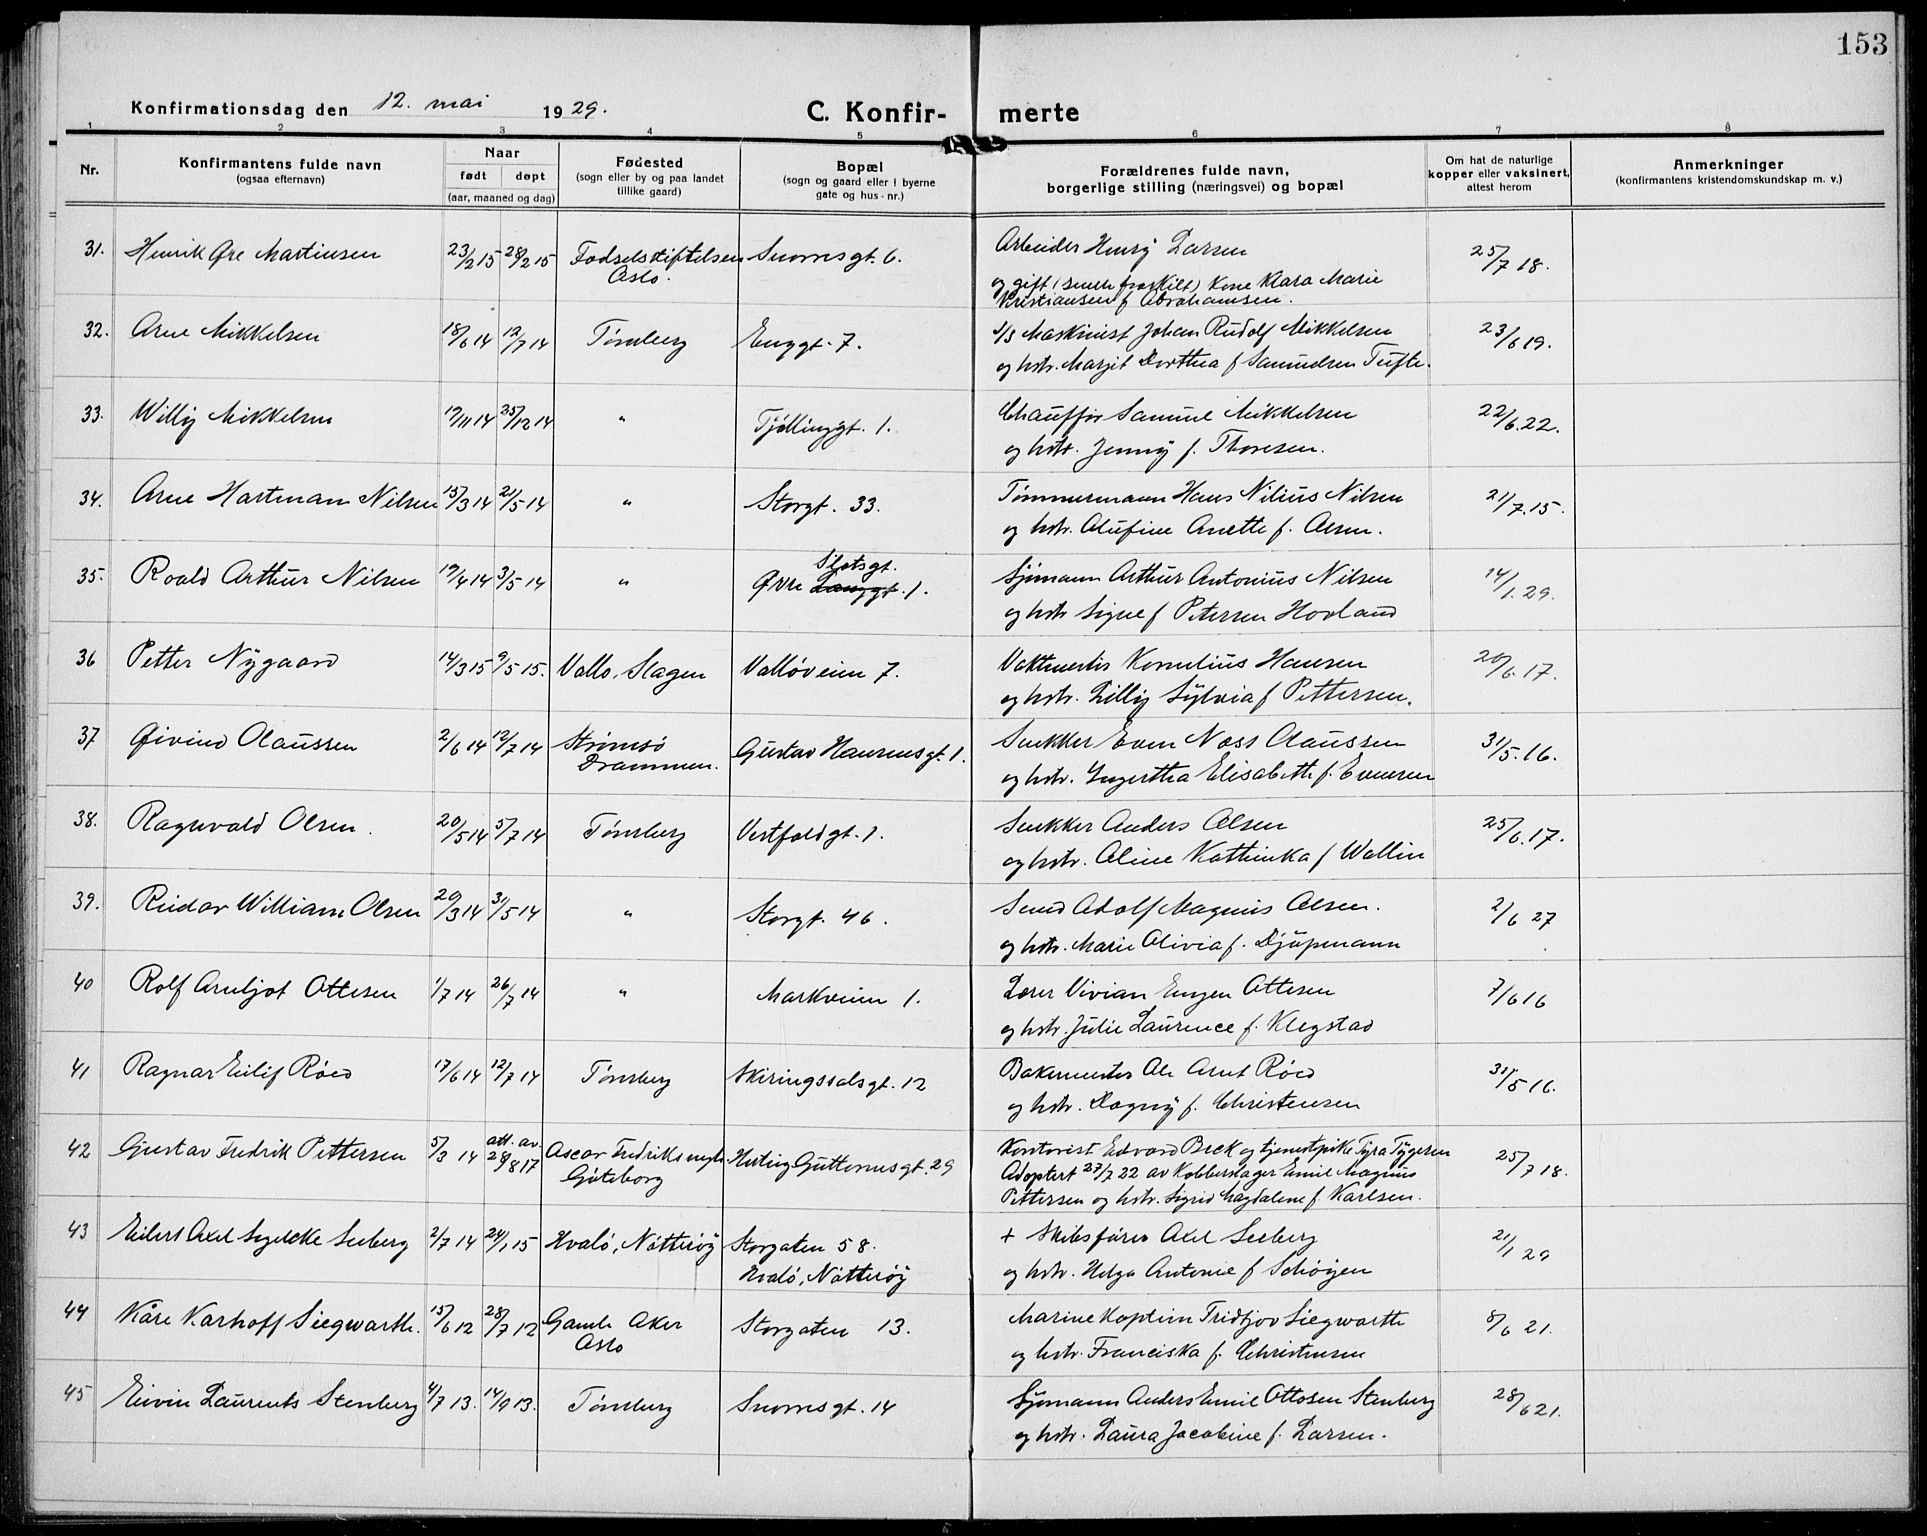 153
Konfirmationsdag den 12. mai 1929.
C. Konfir- merte
1 2 3 4 5 6 7 8
Nr.
Konfirmantens fulde navn
(ogsaa efternavn)
Naar
født døpt
(aar, maaned og dag)
Fødested
(sogn eller by og paa landet
tillike gaard)
Bopæl
(sogn og gaard eller i byerne
gate og hus-nr.)
Forældrenes fulde navn,
borgerlige stilling (næringsvei) og bopæl
Om hat de naturlige
kopper eller vaksinert,
attest herom
Anmerkninger
(konfirmantens kristendomskundskap m. v.)
31. Henrik Øre Martinsen 23/2 15 28/2 15 Fødselsstiftelsen Snorresgt. 6. Arbeider Henry Larsen 25/7 18.
Oslo. og gift (senere fraskilt) Kone Klara Marie
Kristiansen f Abrahamsen.
32. Arne Mikkelsen 18/6 14 12/7 14 Tønsberg Enggt. 7. s/s Maskinist Johan Rudolf Mikkelsen 23/6 19.
og hstr. Marjit Dorthea f Samuelsen Tufte.
33. Willy Mikkelsen 17/11 14 25/12 14 " Tjøllinggt. 1. Chauffør Samuel Mikkelsen 22/6.22.
og hstr. Jenny f. Thoresen.
34. Arne Hartmann Nilsen 15/3 14 21/5 14 " Storgt. 33. Tømmermann Hans Nilius Nilsen 21/7.15.
og hstr. Olufine Anette f. Olsen.
35. Roald Arthur Nilsen 19/4 14 3/5 14 " Øvre Langgt. 1. Sjømann Arthur Antonius Nilsen 14/1.29.
Slotsgt.
og hstr Signe f Petersen Hovland
36 Petter Nygaard 14/3 15 9/5 15. Vallø, Slagen Valløveien 7. Vaktmester Kornelius Hansen 20/6.17.
og hstr. Lilly Sylvia f Pettersen.
37 Øivind Olaussen 2/6 14 12/7 14 Strømsø Gustav Hansensgt. 1. Snekker Even Næss Olaussen 31/5.16.
Drammen. og hstr. Ingertha Elisabeth f. Evensen
38. Ragnvald Olsen. 20/5 14 5/7 14 Tønsberg Vestfoldgt. 1. Snekker Anders Olsen 25/6.17.
og hstr. Oline Kathinka f Wallin
39. Reidar William Olsen 20/3 14 31/5 14 " Storgt. 46. Smed Adolf Magnus Olsen. 2/6 27
og hstr. Marie Olivia f. Djupemann
40 Rolf Arnljot Ottesen 1/7 14 26/7 14 " Markveien 1. Lærer Vivian Eugen Ottesen 7/6 16
og hstr. Julie Laurence f. Klegstad
41 Ragnar Eilif Røed 17/6 14 12/7 14 Tønsberg Skiringssalsgt. 12 Bakermester Ole Arnt Røed 31/5 16.
og hstr. Dagny f. Christensen
42 Gustav Fredrik Pettersen 5/3 14 att. av 28/8 17 Oscar Fredriks Hertug Guttormsgt. 29 Kontorist Edvard Beck og tjenestpike Tyra Tygesen 25/7 18.
Göteborg Adoptert 27/7 22 av Kobberslager Emil Magnus
Pettersen og hstr. Sigrid Magdalene f. Karlsen.
43 Eilert Axel Seeberg 2/7 14 24/1 15 Hvalø, Nøtterøy Storgaten 58. + Skibsfører Axel Seeberg 21/1 29
Hvalø, Nøtterøy og hstr. Helga Antonie f Schøyen
44 Kåre Karhoff Siegwarth. 15/6 12 28/7 12 Gamle Aker Storgaten 13. Marine Kaptein Fridtjov Siegwarth 8/6 21.
Oslo og hstr. Franciska f. Christensen
45 Eivin Laurents Stenberg 4/7 13. 14/9 13. Tønsberg Snorresgt. 14 Sjømann Anders Emil Ottosen Stenberg 28/6 21.
og hstr. Laura Jacobine f. Larsen.